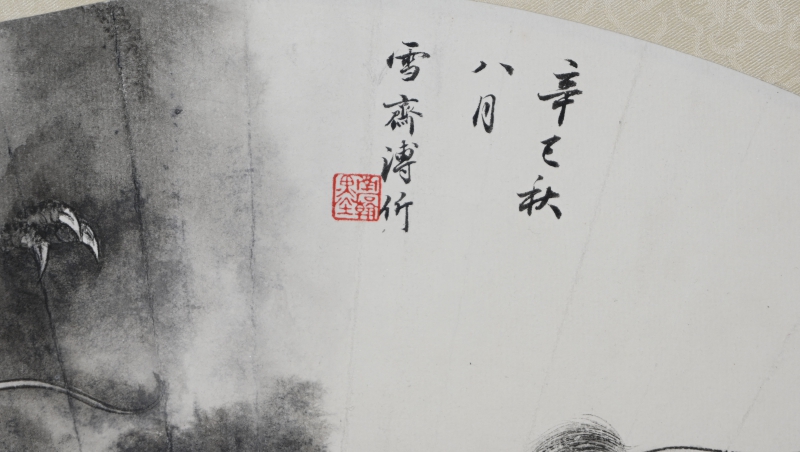 辛巳秋
八月
雪齋溥伒